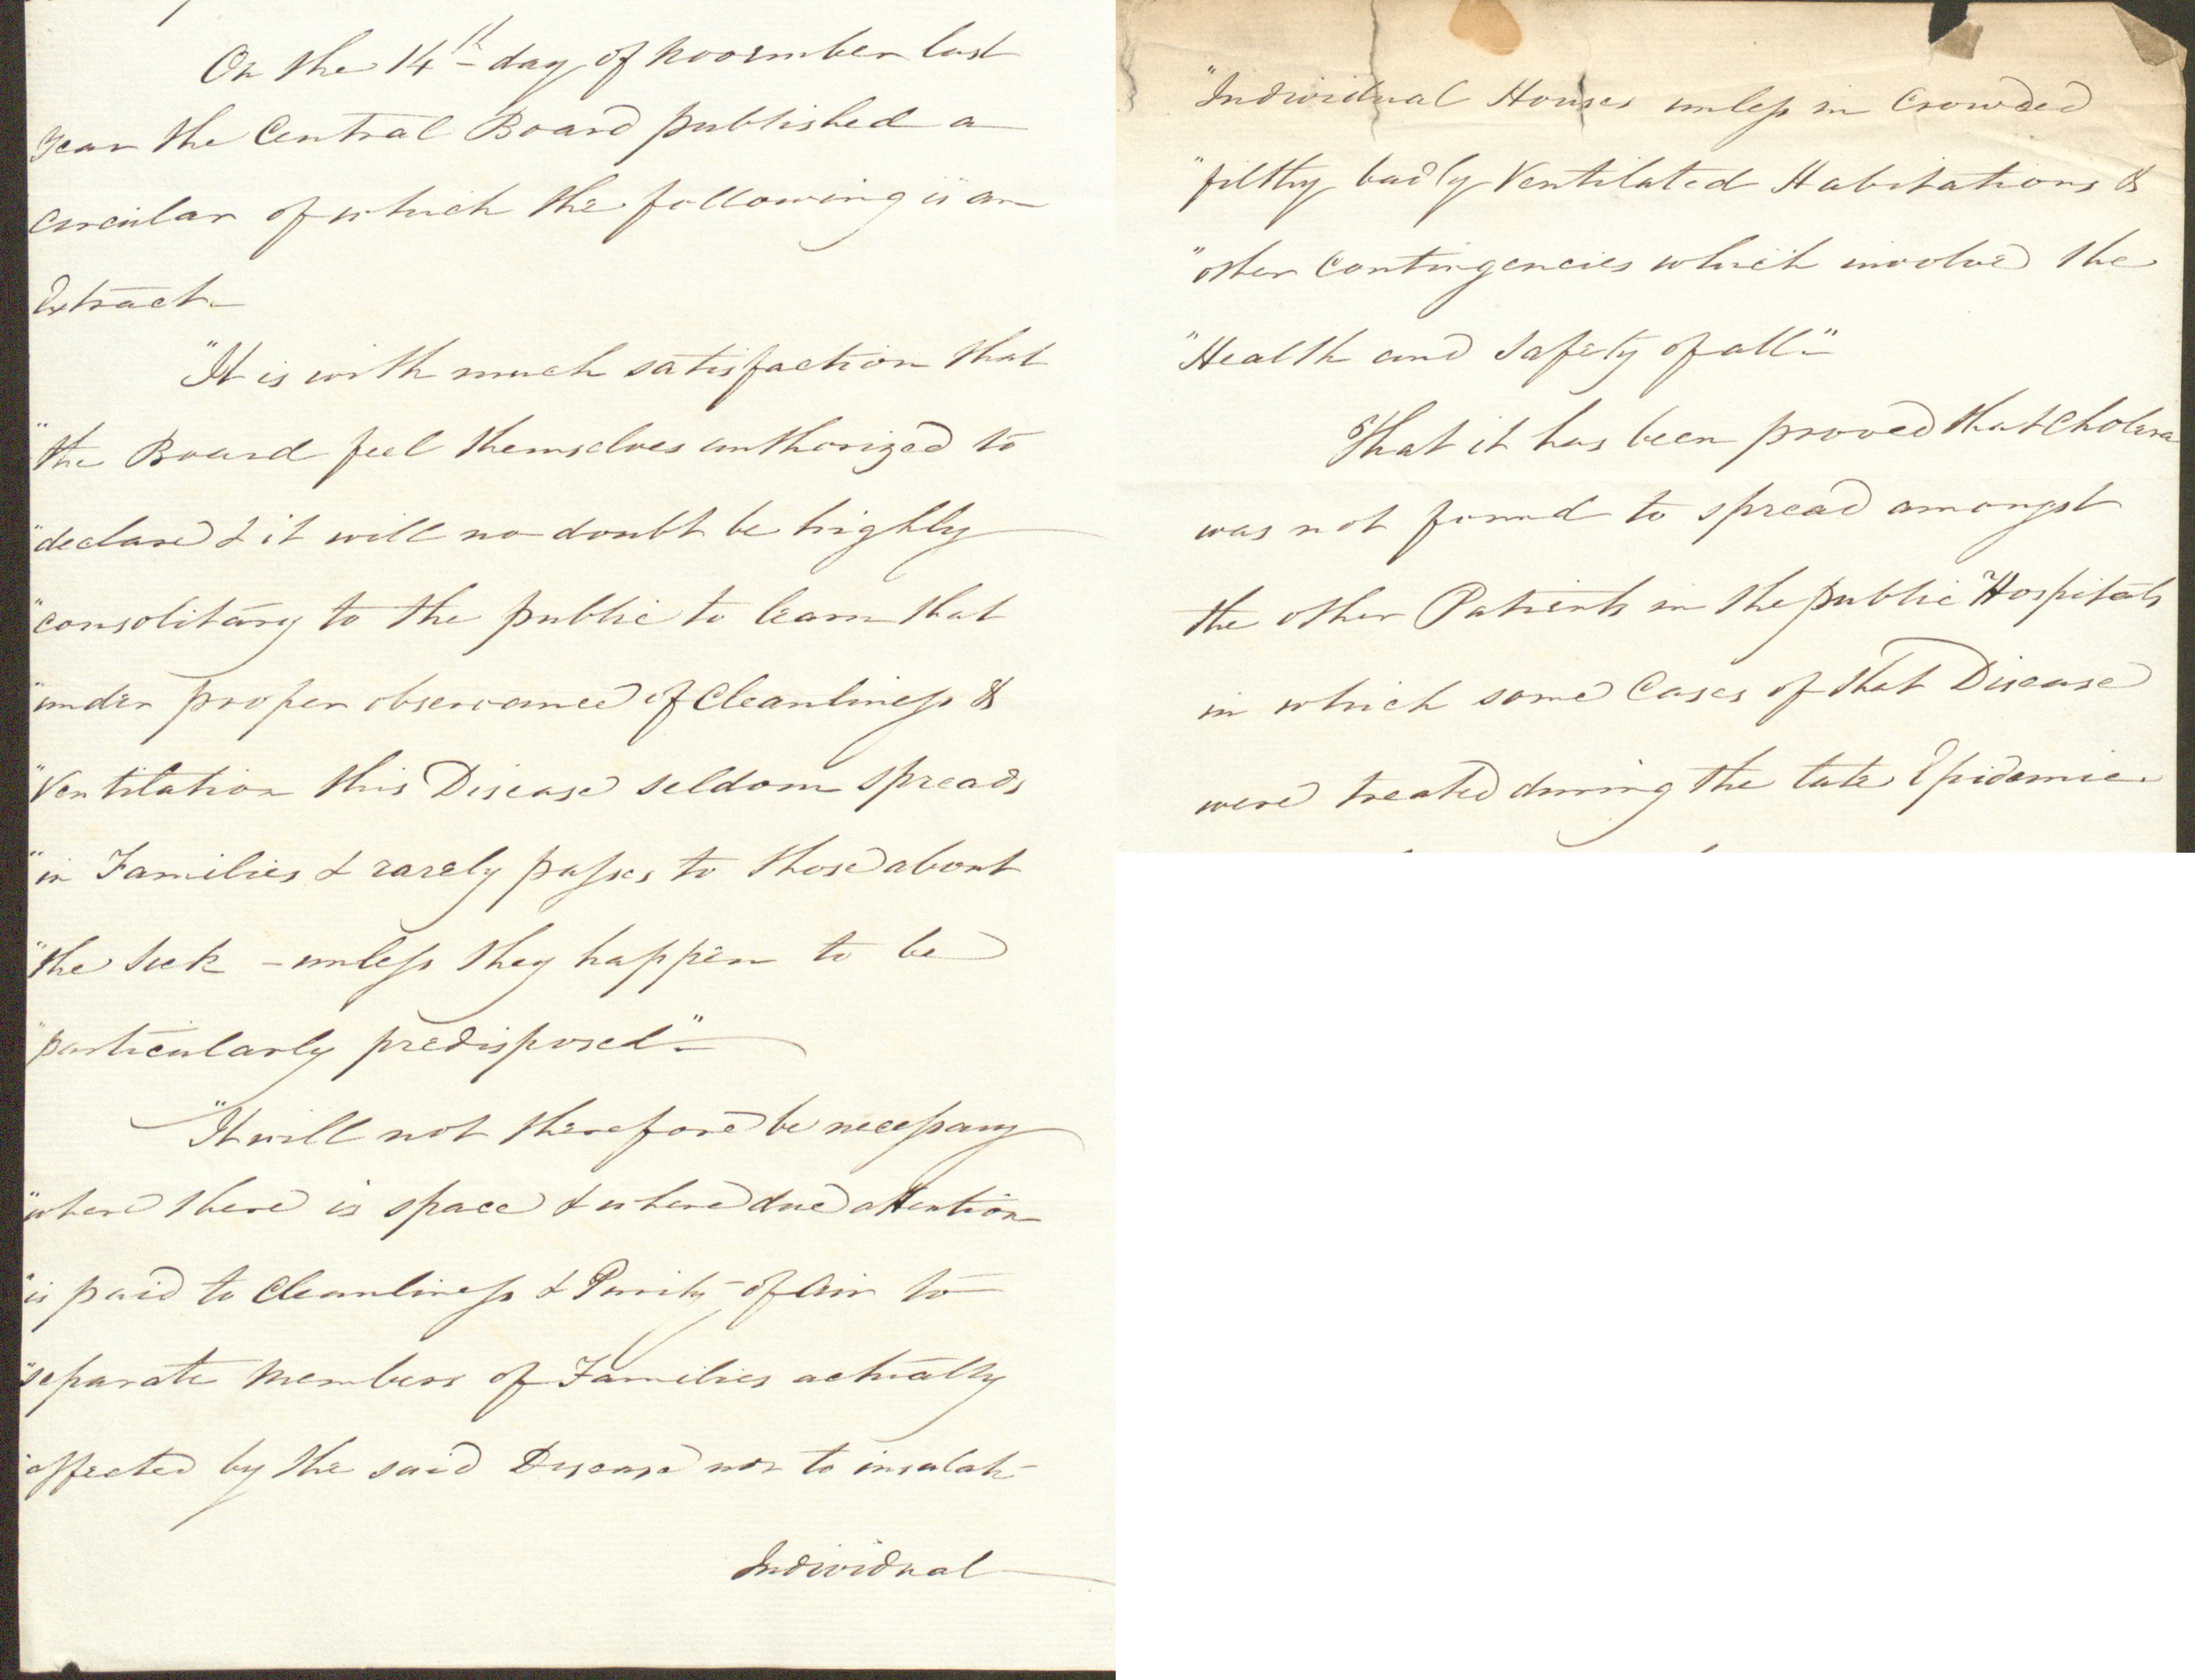 On the 14th day of November last
year the Central Board published a
circular of which the following is an
Extract.
"It is with much satisfaction that
"the Board feel themselves authorized to
"declare & it will no doubt be highly
"consolitary to the public to learn that
"under proper observance of Cleanliness &
"Ventilation this Disease seldom spreads
"in Families & rarely passes to those about
"the Sick – unless they happen to be
"particularly predisposed"
"It will not therefore be necessary
"where there is space & where due attention
"is paid to Cleanliness & Purity of Air to
"separate Members of Families actually
"affected by the said Disease nor to insulate
Individual
"Individual Houses unless in Crowded
"filthy badly Ventilated Habitations &
"other Contingencies which involve the
"Health and Safety of all"
That it has been proved that Cholera
was not found to spread amongst
the other Patients in the public Hospitals
in which some Cases of that Disease
were treated during the late Epidemic.